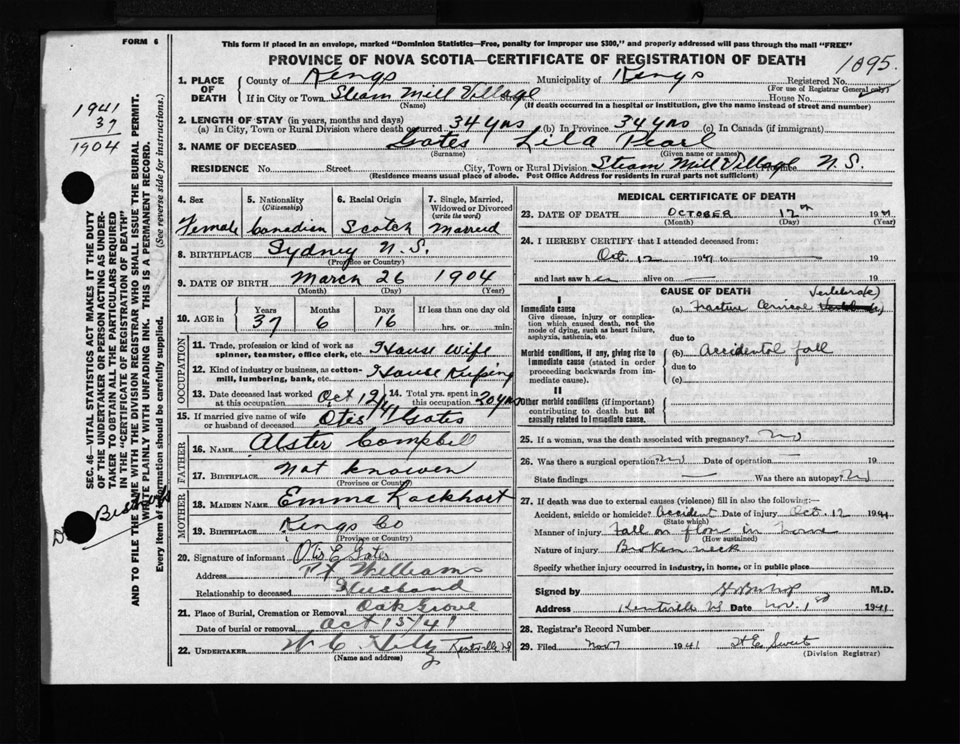 FORM 6
This form if placed in an envelope, marked "Dominion Statistics—Free, penalty for improper use $300," and properly addressed will pass through the mail "FREE"
PROVINCE OF NOVA SCOTIA—CERTIFICATE OF REGISTRATION OF DEATH
1895.
1. PLACE OF DEATH
County of Kings Municipality of Kings Registered No.
(For use of Registrar General only)
If in City or Town Steam Mill Village House No.
(Name) (If death occurred in a hospital or institution, give the name instead of street and number)
2. LENGTH OF STAY (in years, months and days)
(a) In City, Town or Rural Division where death occurred 34 yrs (b) In Province 34 yrs (c) In Canada (if immigrant)
3. NAME OF DECEASED Gates Lila Pearl
(Surname) (Given name or names)
RESIDENCE No. Street City, Town or Rural Division Steam Mill Village Province N.S.
(Residence means usual place of abode. Post Office Address for residents in rural parts not sufficient)
1941
37
1904
SEC. 46—VITAL STATISTICS ACT MAKES IT THE DUTY
OF THE UNDERTAKER OR PERSON ACTING AS UNDER-
TAKER TO OBTAIN ALL THE PARTICULARS REQUIRED
IN THE "CERTIFICATE OF REGISTRATION OF DEATH"
AND TO FILE THE SAME WITH THE DIVISION REGISTRAR WHO SHALL ISSUE THE BURIAL PERMIT.
WRITE PLAINLY WITH UNFADING INK. THIS IS A PERMANENT RECORD.
Every item of information should be carefully supplied. (See reverse side for instructions.)
4. Sex
Female
5. Nationality
(Citizenship)
Canadian
6. Racial Origin
Scotch
7. Single, Married,
Widowed or Divorced
(write the word)
Married
8. BIRTHPLACE Sydney N.S.
(Province or Country)
9. DATE OF BIRTH March 26 1904
(Month) (Day) (Year)
10. AGE in Years Months Days If less than one day old
37 6 16 hrs. or min.
OCCUPATION
11. Trade, profession or kind of work as
spinner, teamster, office clerk, etc. House Wife
12. Kind of industry or business, as cotton-
mill, lumbering, bank, etc. House Keeping
13. Date deceased last worked
at this occupation Oct 12/41
14. Total yrs. spent in
this occupation 20 yrs
15. If married give name of wife
or husband of deceased Otis V Gates
FATHER
16. NAME Alster Campbell
17. BIRTHPLACE Not knowen
(Province or Country)
MOTHER
18. MAIDEN NAME Emma Lockhart
19. BIRTHPLACE Kings Co
(Province or Country)
20. Signature of informant Otis E Gates
Address Pt Williams
Relationship to deceased Husband
21. Place of Burial, Cremation or Removal Oak Grove
Date of burial or removal Oct 15/41
22. UNDERTAKER W C Kentville NS
(Name and address)
MEDICAL CERTIFICATE OF DEATH
23. DATE OF DEATH OCTOBER 12th 1941
(Month) (Day) (Year)
24. I HEREBY CERTIFY that I attended deceased from:
Oct 12 1941 to 19
and last saw her alive on 19
CAUSE OF DEATH
I
Immediate cause
Give disease, injury or complica-
tion which caused death, not the
mode of dying, such as heart failure,
asphyxia, asthenia, etc.
(a) Fracture Cervical Vertebrae)
due to
Morbid conditions, if any, giving rise to
immediate cause (stated in order
proceeding backwards from im-
mediate cause).
(b) Accidental fall
due to
(c)
II
Other morbid conditions (if important)
contributing to death but not
causally related to immediate cause.
25. If a woman, was the death associated with pregnancy? No
26. Was there a surgical operation? No Date of operation — 19
State findings — Was there an autopsy? No
27. If death was due to external causes (violence) fill in also the following:—
Accident, suicide or homicide? Accident Date of injury Oct. 12 1941
(State which)
Manner of injury Fall on floor in house
(How sustained)
Nature of injury Broken neck
Specify whether injury occurred in industry, in home, or in public place
Signed by Bishop M.D.
Address Kentville NS Date Nov. 1st 1941
28. Registrar's Record Number
29. Filed Nov 7 1941 H E Swet
(Division Registrar)